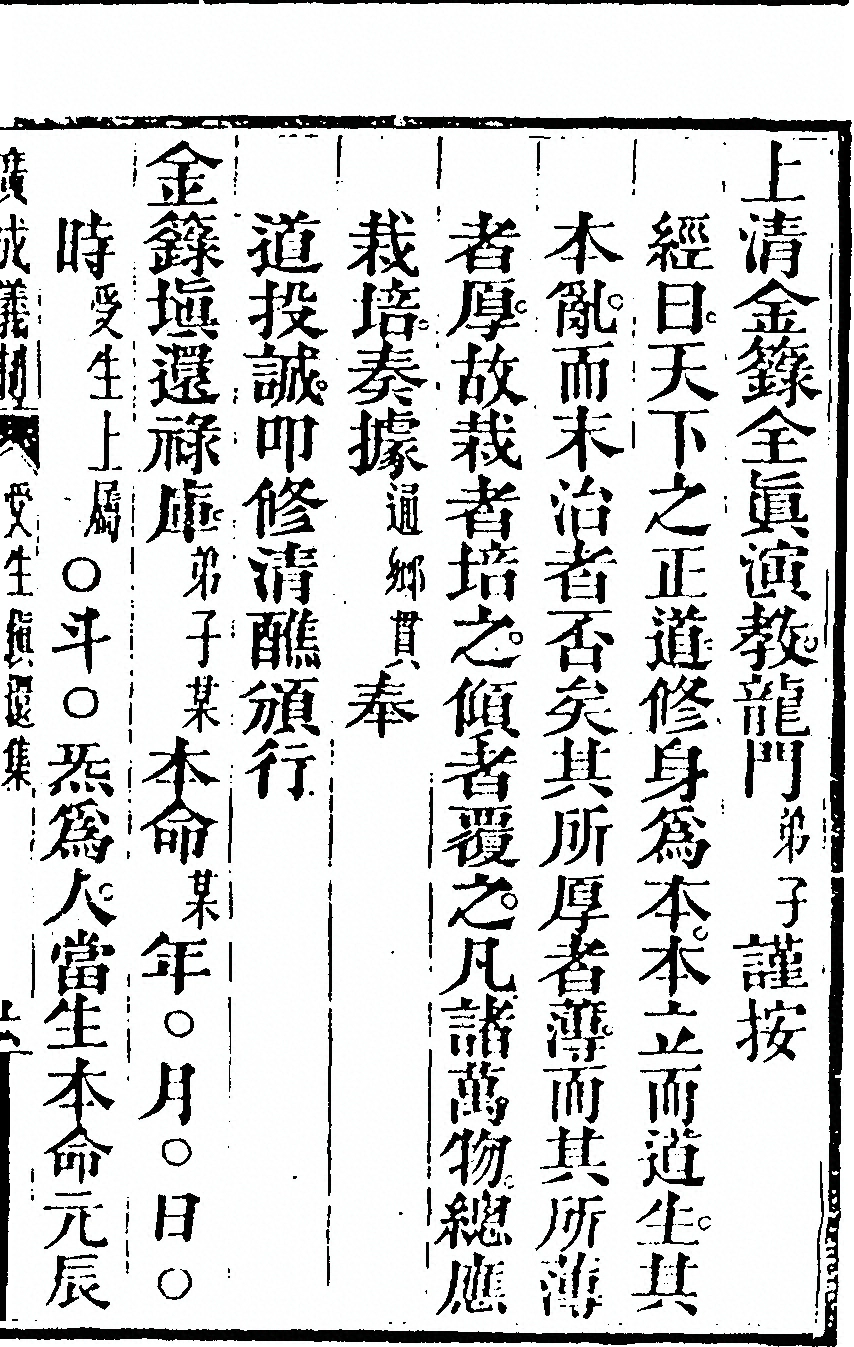 上清金籙全眞演教。龍門弟子謹按
經曰。天下之正道修身爲本。本立而道生。其
本亂。而末治者否矣其所厚者薄。而其所薄
者厚。故栽者培之。傾者覆之。凡諸萬物。總應
栽培。奏據通鄉貫奉
道投誠。叩修清醮頒行
金籙塡還祿庫。弟子某本命某年○月○日○
時受生上屬○斗○炁爲人。當生本命元辰
廣成儀制 受生塡還集